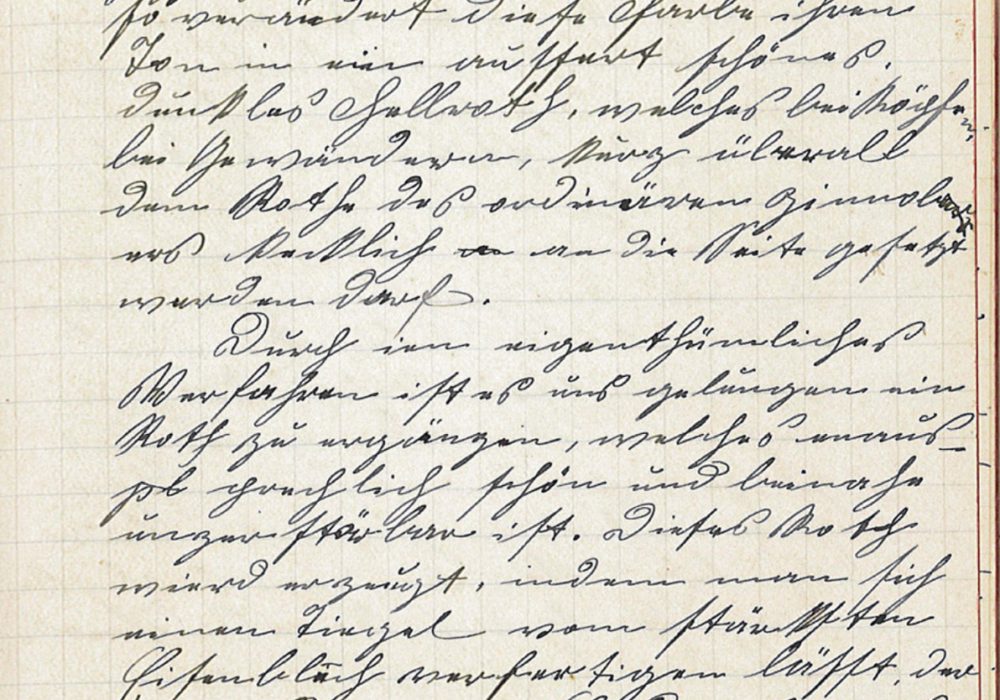 so verändert diese Farbe ihren
Ton in ein äussert schönes,
dunkles Hellroth, welches bei Köpfen,
bei Gewändern, kurz überall
dem Rothe des ordinären Zinnob
ers kecklich an die Seite gesetzt
werden darf.
Durch ien eigenthümliches
Verfahren ist es uns gelungen ein
Roth zu ergänzen, welches unaus-
sprechlich schön und beinahe
unzerstörbar ist. Dieses Roth
wierd erzeugt, indem man sich
einen Tiegel vom stärksten
Eisenblech verfertigen lässt, der